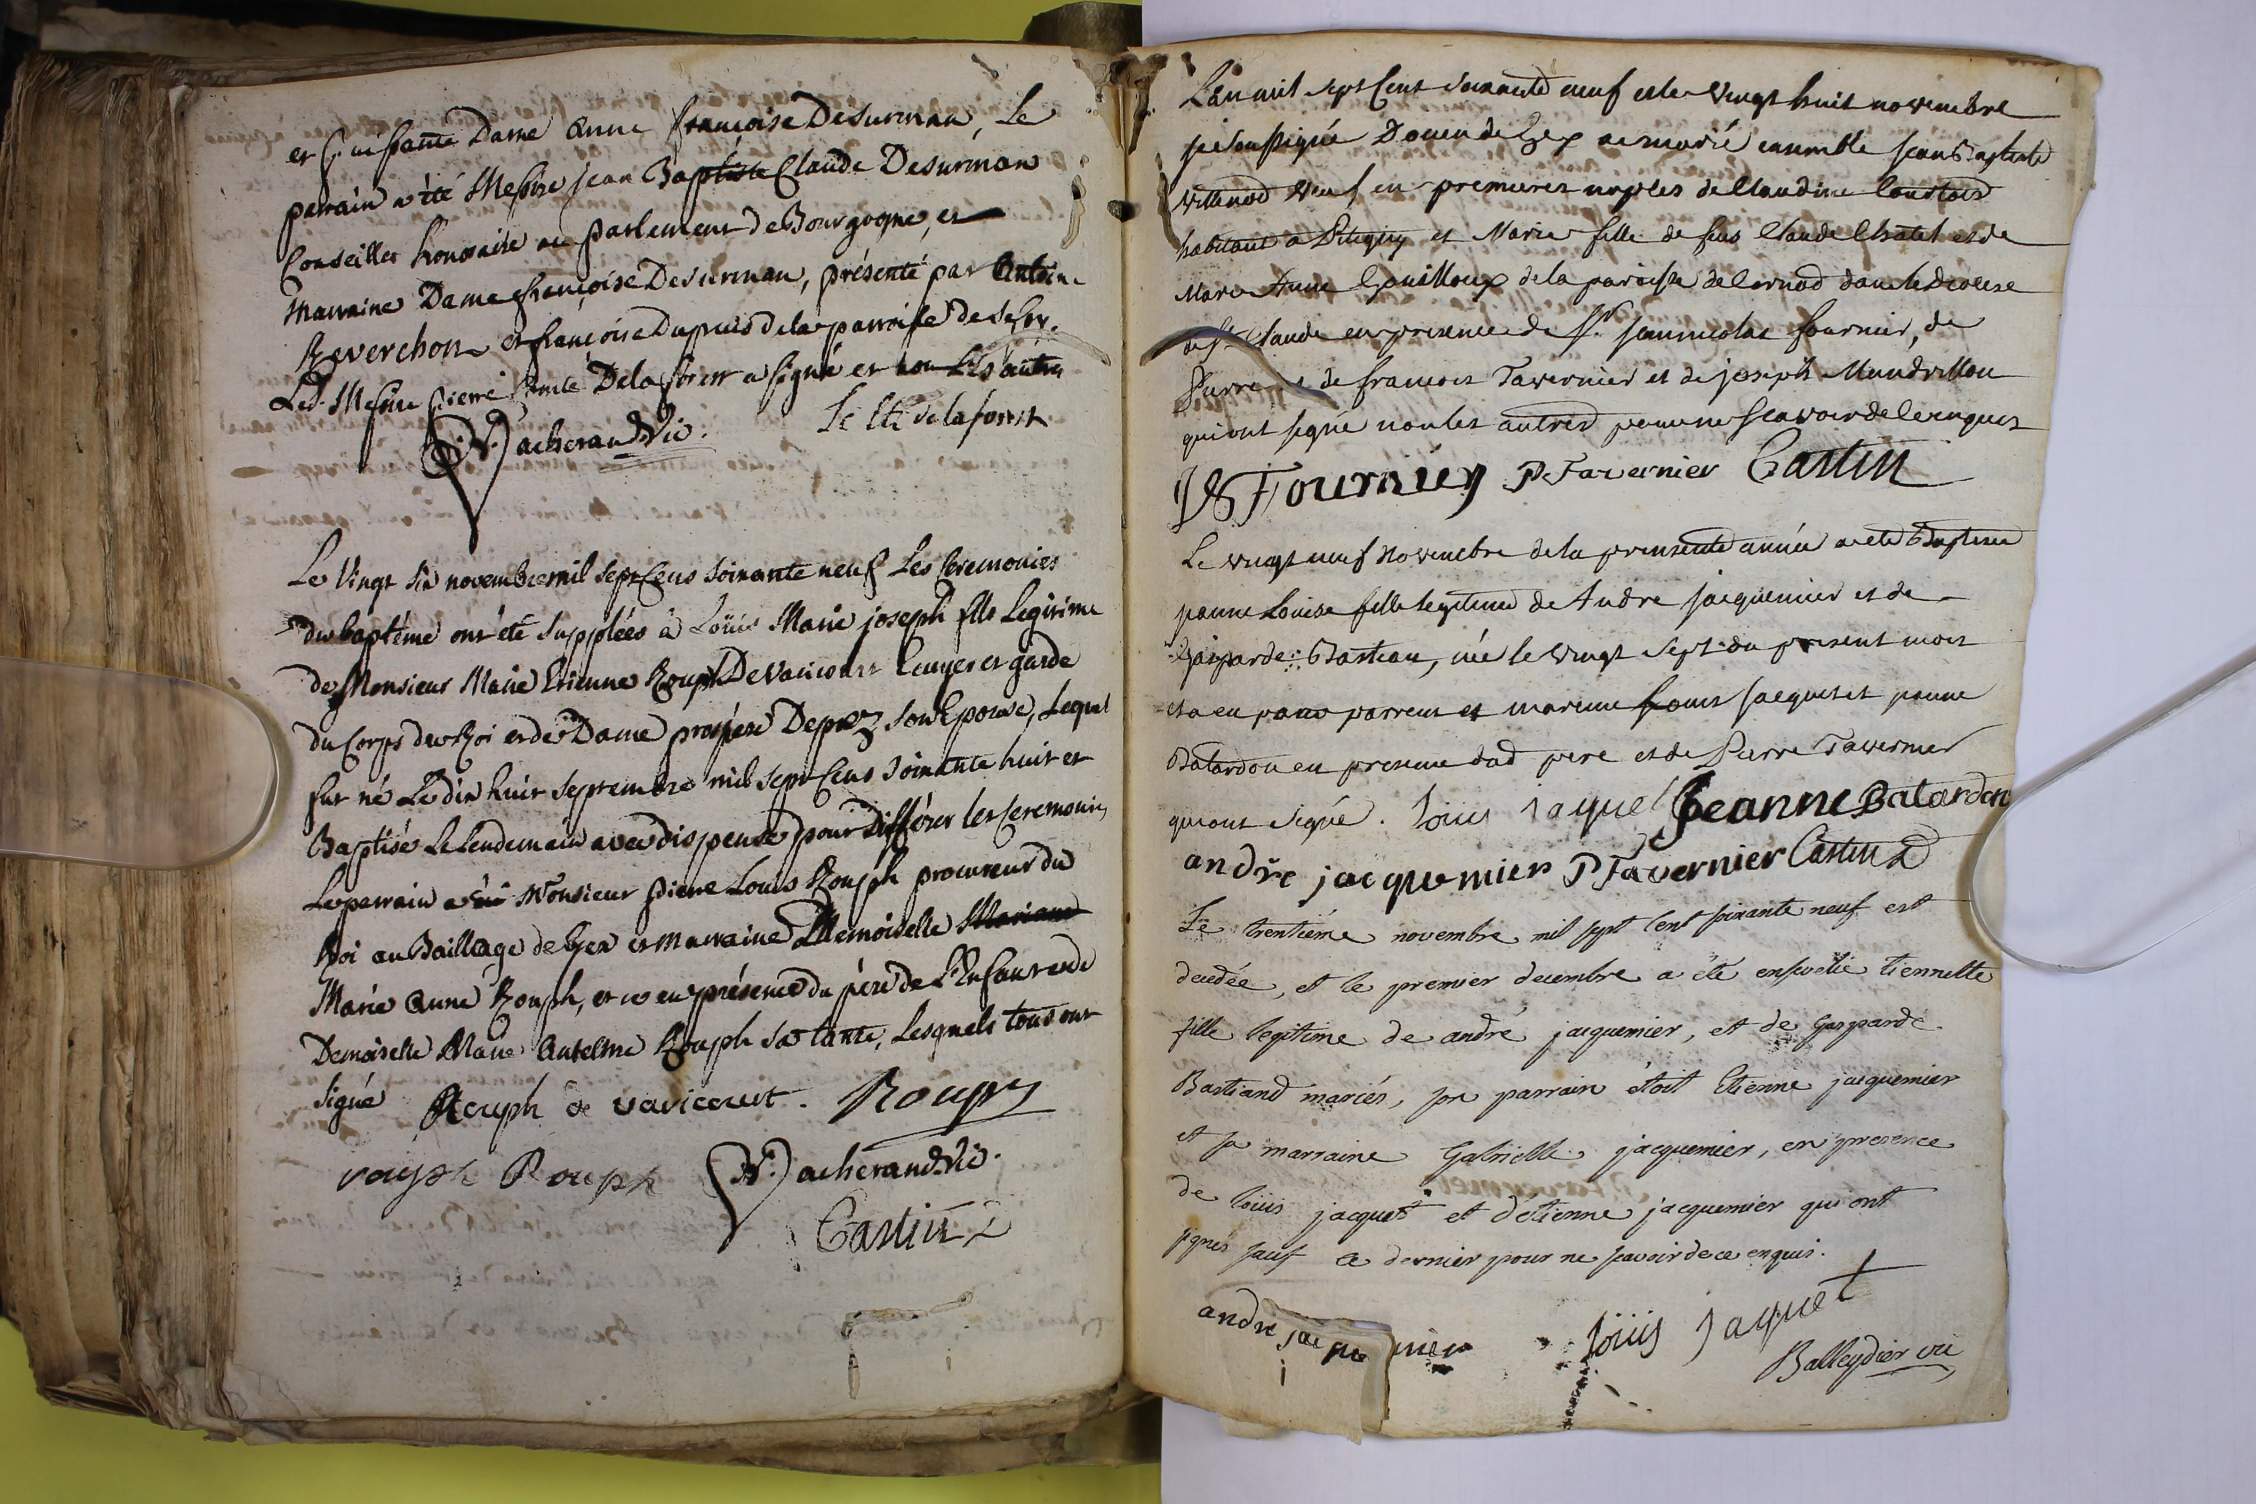 et puissante Dame anne françoise Desurman, Le
parrain a été Messire jean Baptiste Claude Desurman
Conseiller honoraire au parlement de Bourgogne, et
marraine Dame françoise Desurman, présenté par Antoine
Reverchon et françoise Dupuis de la parroisse de
Led. Messire pierre Comte Delaforest a signé et non Les autres
Vacherand Vic. Le Cte de laforest
Le Vingt six novembre mil sept Cens soixante neuf Les Ceremonies
du baptéme ont été Suppléées à Loüis Marie joseph fils Legitime
de Monsieur Marie Etienne Rouph De Varicourt Ecuyer et garde
du Corps du Roi et de Dame prospere Deprez son Epouse, Lequel
fut né Le dix huit septembre mil sept Cens Soixante huit et
Baptisé Le Lendemain avec dispense pour différer les Ceremonies
Le parrain a été Monsieur pierre Louis Rouph procureur du
Roi au Baillage de Gex et marraine Demoiselle Mariane
Marie Anne Rouph, et ce en présence du père de L'Enfant et de
Demoiselle Marie Antelme Rouph sa tante, Lesquels tous ont
Signé Rouph de varicourt. Rouph
rouph Rouph Vacherand Vic.
Castin
L'an mil sept Cent soixante neuf et le Vingt huit novembre
je soussigné Doyen de Gex ai marié ensemble jean Baptiste
Villerod Veuf en premieres nopces de Claudine
habitant a et Marie fille de feus Claude Chatel et de
Marie Anne de la paroisse de Cernod dans le Diocese
de St Claude en presence de Sr. jean nicolas fournier, de
Pierre et de francois Tavernier et de joseph Mandrillon
qui ont signé non les autres pour ne scavoir de ce enquis
Fournier P Tavernier Castin
Le vingt neuf Novembre de la presente année a été Baptisée
jeanne Louise fille legitime de Andre jacquemier et de
Gasparde Bastian, née le vingt sept du present mois
et a eu pour parrein et mareine Louis jacquet et jeanne
Batardon en presence dud pere et de Pierre Tavernier
qui ont signé. loüis jaquet Jeanne Batardon
andre jacquemier P Tavernier Castin
Le trentième novembre mil sept cent soixante neuf est
decedée, et le premier decembre a été ensevelie tiennette
fille legitime de andré jacquemier, et de Gasparde
Bastiand mariés, son parrain étoit Etienne jacquemier
et sa marraine Gabrielle jacquemier, en presence
de loüis jacquet et d'étienne jacquemier qui ont
signés sauf ce dernier pour ne scavoir de ce enquis.
andre jacquemier loüis jaquet
Balleydier vic